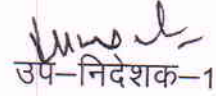 उप–निदेशक–1